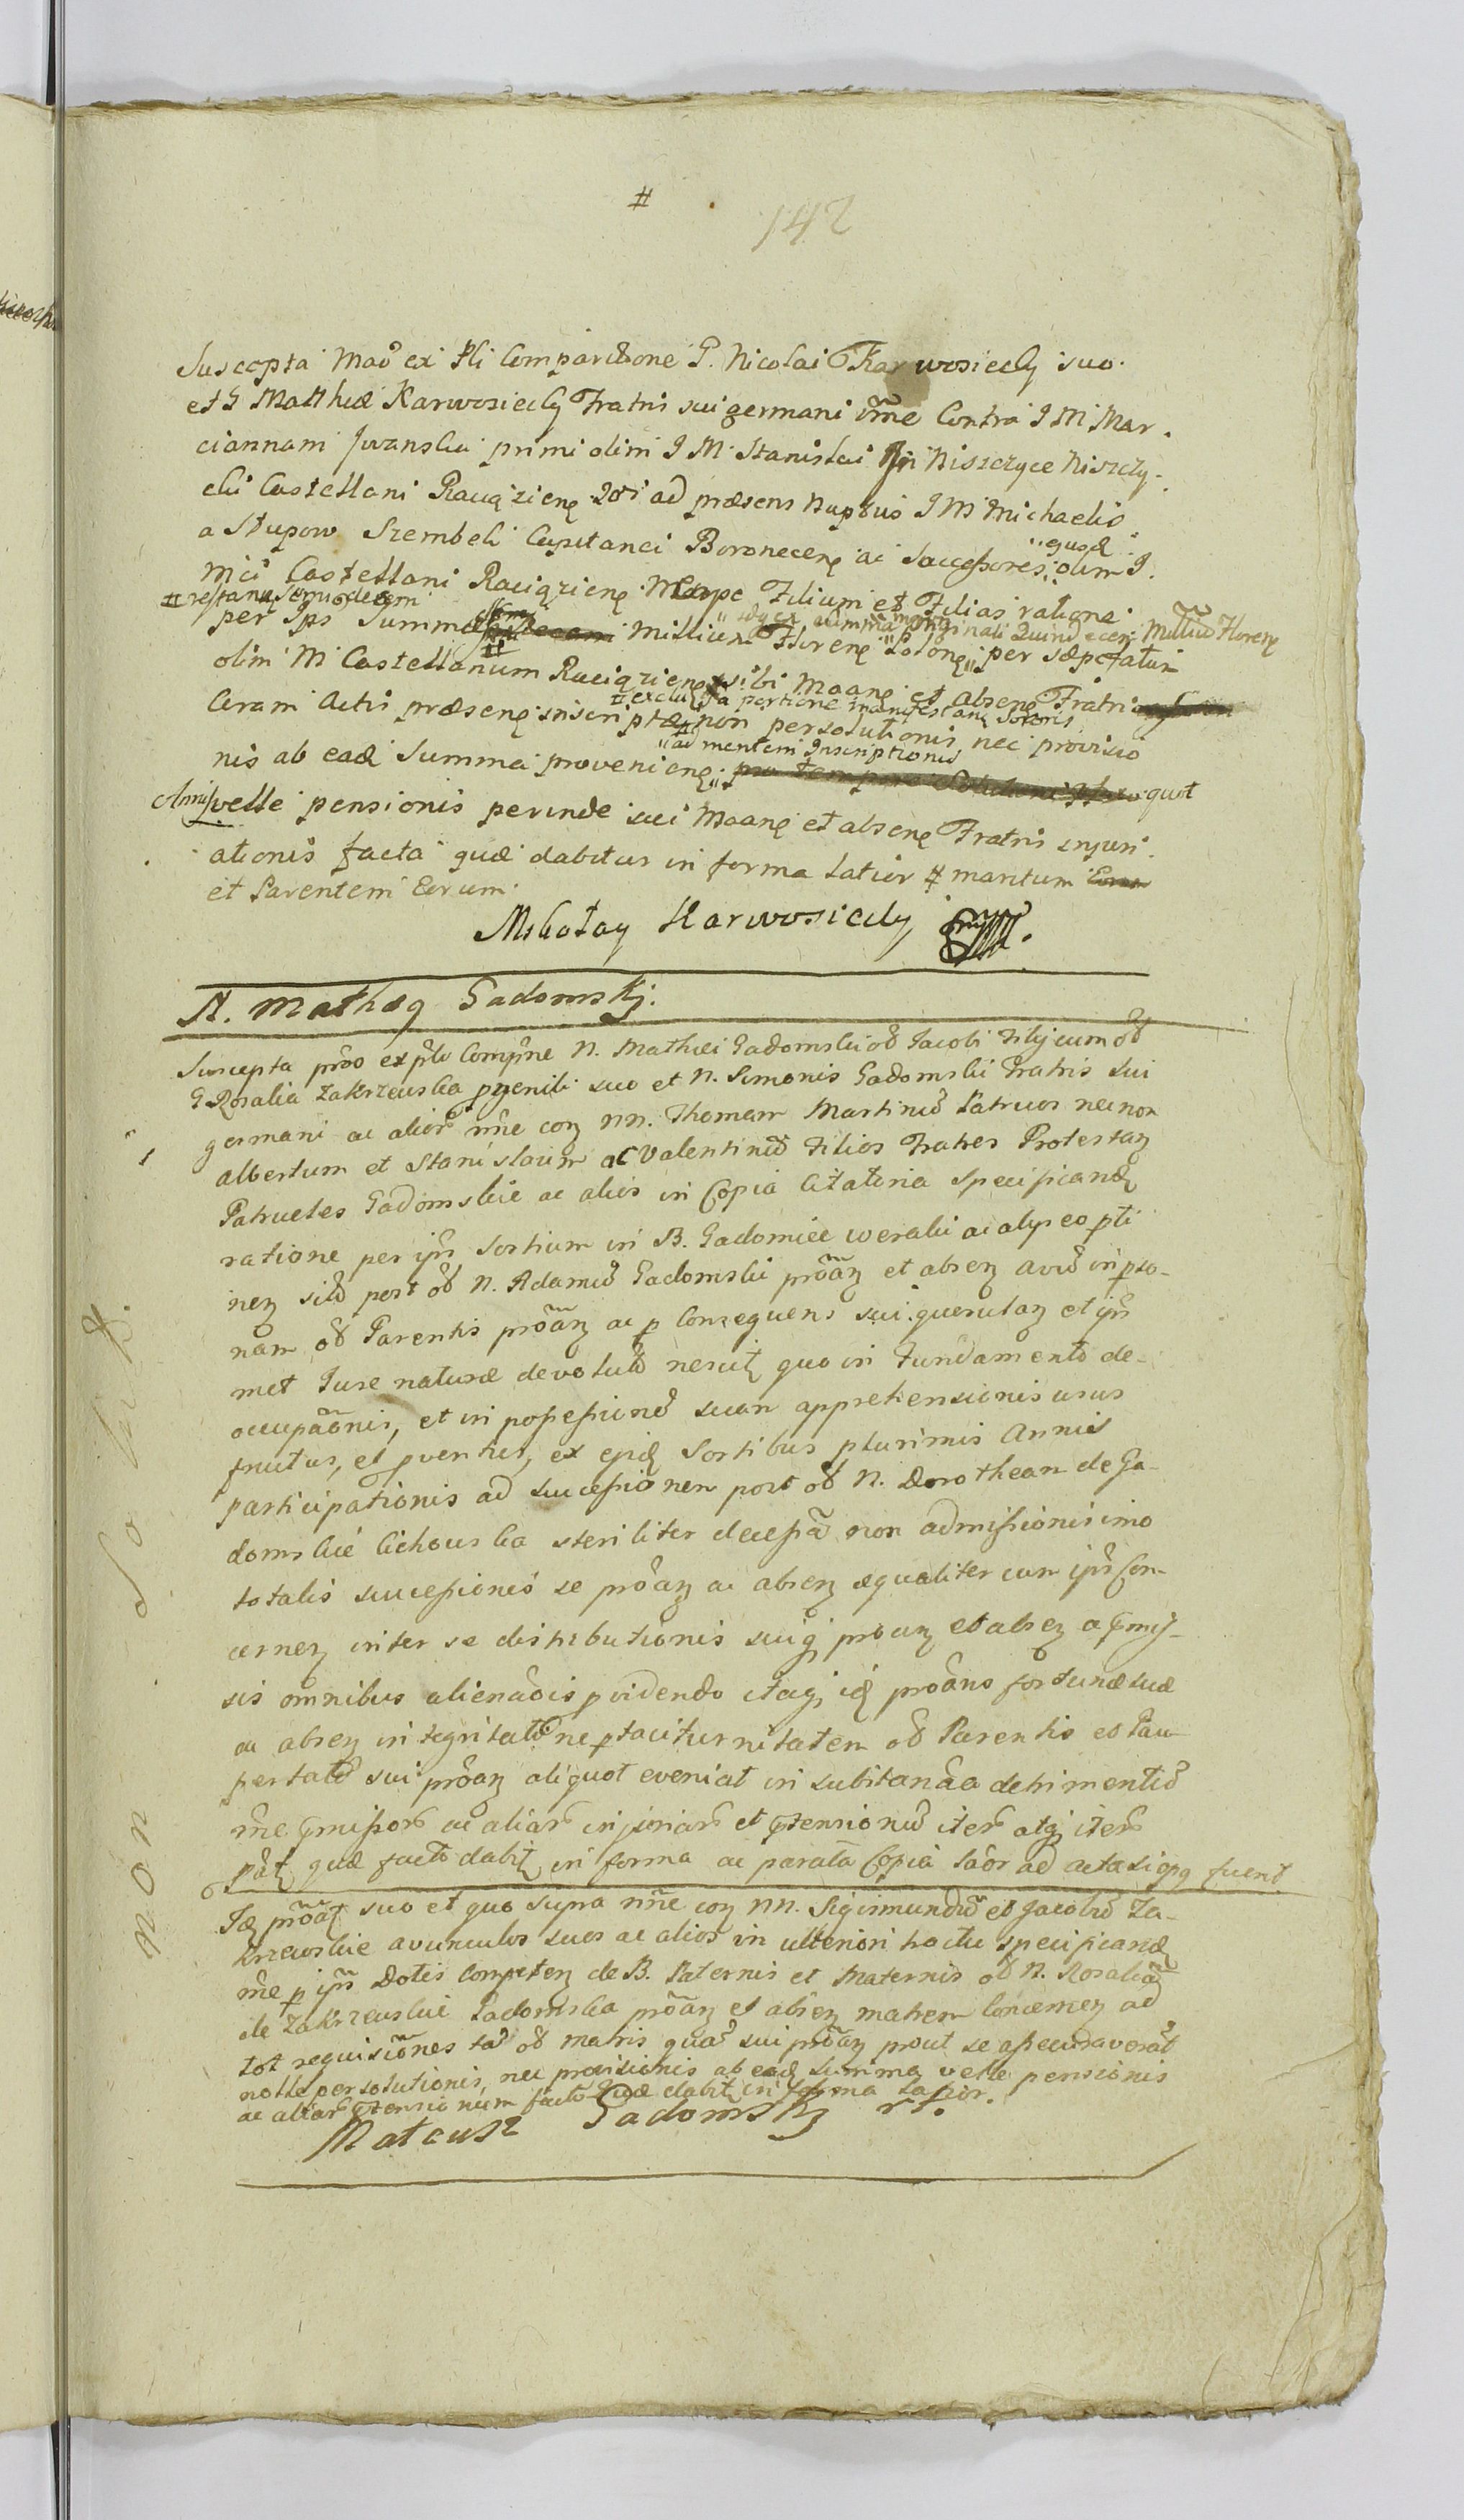 #
142
Suscepta Mão ex Pli Comparitione G. Nicolai Karwosiecky suo
et G Matthiæ Karwosiecky Fratris sui germani rñe Contra J M Mar
ciannam Jwanska primi olim J M Stanislai in Niszczyce Niszczy
cki Castellani Raciązieñ 2di ad præsens nuptus J M Michaelis
a Słupow Szembek Capitanei Boroneceñ ac Successores olim J
ejusd
Mci Castellani Raciązieñ Filium et Filias ratione
# restanñ Semodecem
per Ips Summæ Millium Floreñ Poloñ per sæpefatum
ex summa originali Quindecem Milliũ Floreñ
olim M Castellanum Raciązieñ sibi Maañ et absenñ Fratri
# exclusa portione manifestanñ Sororis
Coram Actis præseñ inscriptæ non persolutionis nec provisio
nis ab eadẽ Summa provenieñ quot
ad mentem Inscriptionis
annis velle pensionis perinde sui Maanñ et absenñ Fratris injuri
ationis facta quæ dabitur in forma latior # maritum
et Parentem Eorum
Mikołay Karwosiecky mp.
N. Mathæq Gadomskj.
Suscepta prõo ex plo Compñe N. Mathæi Gadomski oł Jacobi Filij cum oł
G Rosalia Zakrzewska pgeniti suo et N. Simonis Gadomski Fratris sui
germani ac alior rñe con NN. Thomam Martinũ Patruos necnon
albertum et Stanislaum ac Valentinũ Filios Fratres Protestañ
Patrueles Gadomskie ac alios in Copia Citatoria specificand
ratione per ipñ Sortium in B. Gadomiec werakii ac alijs eo pti
neñ sitũ post oł N. Adamũ Gadomski prõañ et absenñ avũ in pso-
nam oł Parentis prõañ ac p Consequens sui querulañ et ipñ
met Jure naturæ devolutũ nesciẗ quo in Fundamento de-
occupãonis, et in possessionẽ suam apprehensionis usus
fructus, et pventus, ex ejsd Sortibus plurimis Annis
participationis ad successionem post oł N. Dorotheam de Ga-
domskie Cichowska steriliter decessã non admissionis imo
totalis successionis se prõañ ac absenñ æqualiter cum ipñ Con-
cerneñ inter se distributionis suiq prõañ et absenñ a pmis-
sis omnibus alienaõis pvidendo itaq id prõans fortunæ suæ
ac absenñ integritatẽ ne p taciturnitatem oł Parentis et Pau-
pertatẽ sui prõañ aliquot eveniat in subitanẽa detrimentũ
rñe pmissor ac aliar injuriar et ptensionũ iter atq iter
pãt quæ facto dabit in forma ac parata Copia lãor ad acta si opq fuerit
Id prõãt suo et quo supra rñe con NN. Sigismundũ et Jacobũ Za-
krzewskie avunculos suos ac alios in ulteriori hoctu specificand
rñe p ipñ Dotis Competeñ de B. Paternis et Maternis oł N. Rosaliã
de Zakrzewskie Gadomska prõañ et absenñ matrem Concerneñ ad
tot requisitiones tã oł Matris quã sui prõañ prout se assecuraverãt
nolle persolutionis, nec provisionis ab ead summa velle pensionis
ac aliar ptensionum facto Quæ dabit in forma latior.
Mateusz Gadomsky
non do kf.